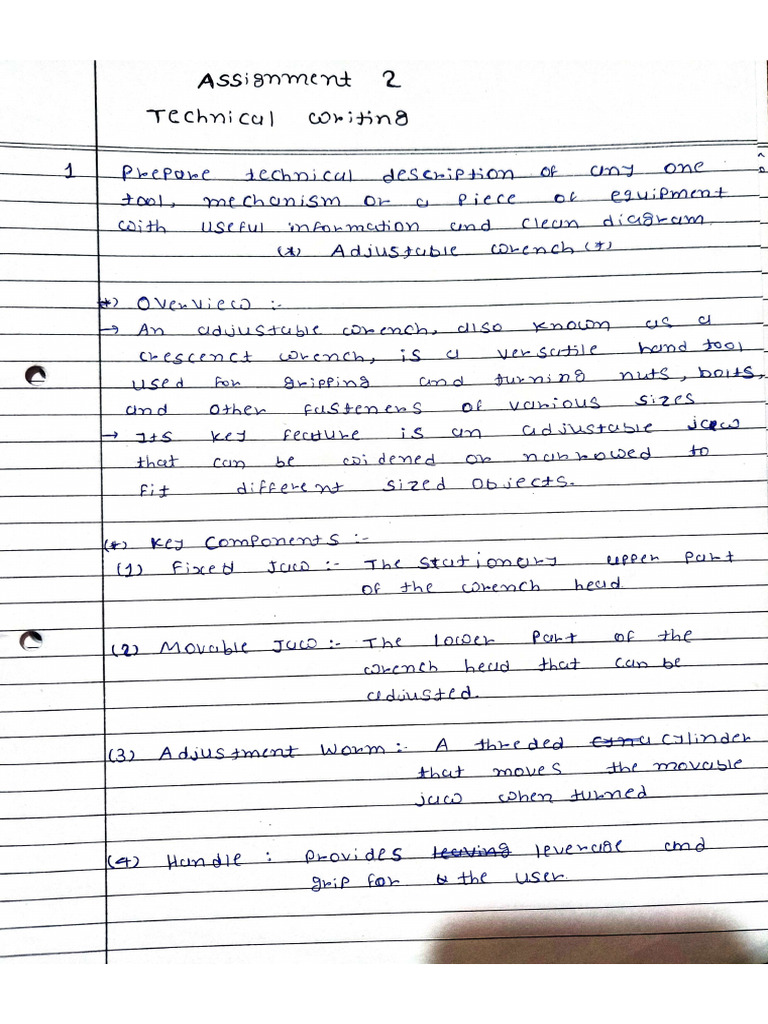 Assignment 2
Technical writing
1 Prepare technical description of any one
tool, mechanism or a piece of equipment
with useful information and clean diagram
(*) Adjustable wrench (*)
*) Overview :-
→ An adjustable wrench, also known as a
crescenct wrench, is a versatile hand tool
used for gripping and turning nuts, bolts,
and other fasteners of various sizes
→ Its key feature is an adjustable jaw
that can be widened or narrowed to
fit different sized objects.
(*) Key Components :-
(1) Fixed Jaw :- The stationery upper part
of the wrench head
(2) Movable Jaw :- The lower part of the
wrench head that can be
adjusted.
(3) Adjustment Worm :- A threded cylinder
that moves the movable
jaw when turned
(4) Handle : Provides leverage and
grip for the user.